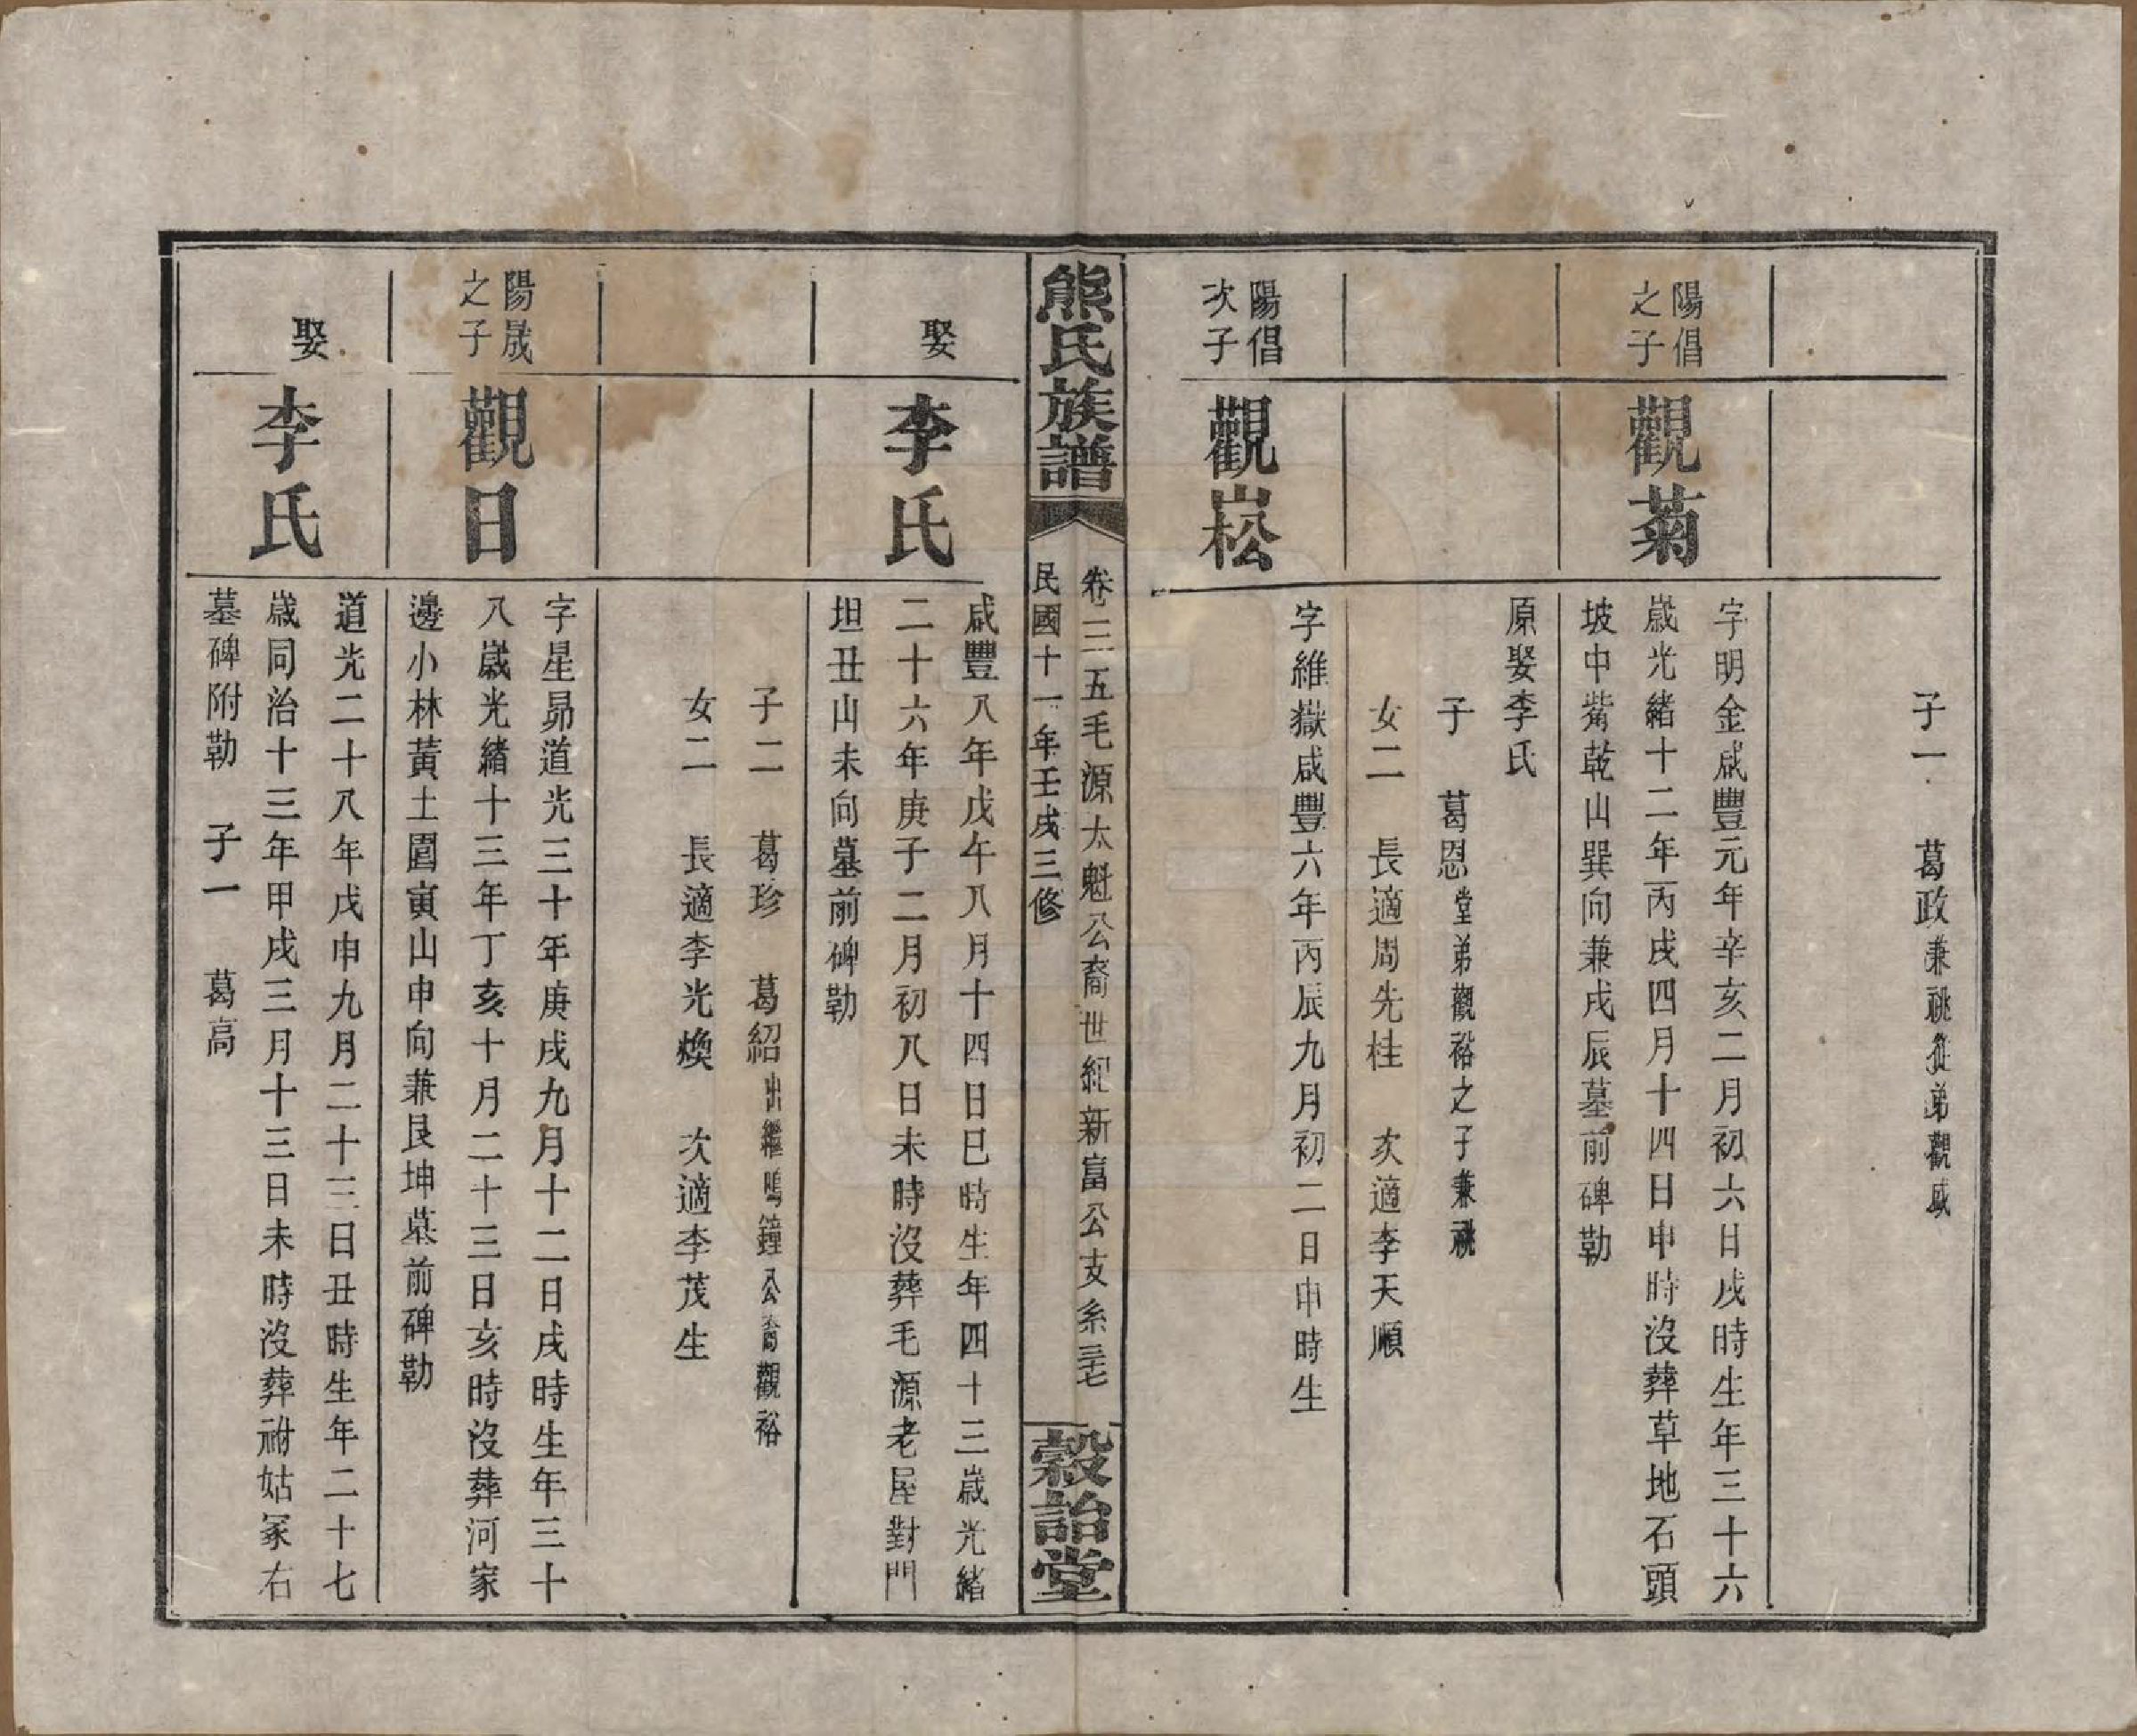 子一　葛政兼祧從弟觀威
陽倡
之子
觀菊
字明金咸豐元年辛亥二月初六日戌時生年三十六
歲光緒十二年丙戌四月十四日申時沒葬草地石頭
坡中觜乾山巽向兼戌辰墓前碑勒
原娶李氏
子　葛恩堂弟觀裕之子兼祧
女二　長適周先桂　次適李天順
陽倡
次子
觀崧
字維嶽咸豐六年丙辰九月初二日申時生
熊氏族譜
卷三五毛源太魁公裔世紀新富公支系三七
民國十一年壬戌三修
穀詒堂
娶
李氏
咸豐八年戊午八月十四日巳時生年四十三歲光緒
二十六年庚子二月初八日未時沒葬毛源老屋對門
坦丑山未向墓前碑勒
子二　葛珍　葛紹出繼鳴鐘公裔觀裕
女二　長適李光煥　次適李茂生
陽晟
之子
觀日
字星昴道光三十年庚戌九月十二日戌時生年三十
八歲光緒十三年丁亥十月二十三日亥時沒葬河家
邊小林黃土圕寅山申向兼艮坤墓前碑勒
娶
李氏
道光二十八年戊申九月二十三日丑時生年二十七
歲同治十三年甲戌三月十三日未時沒葬祔姑冢右
墓碑附勒　子一　葛高